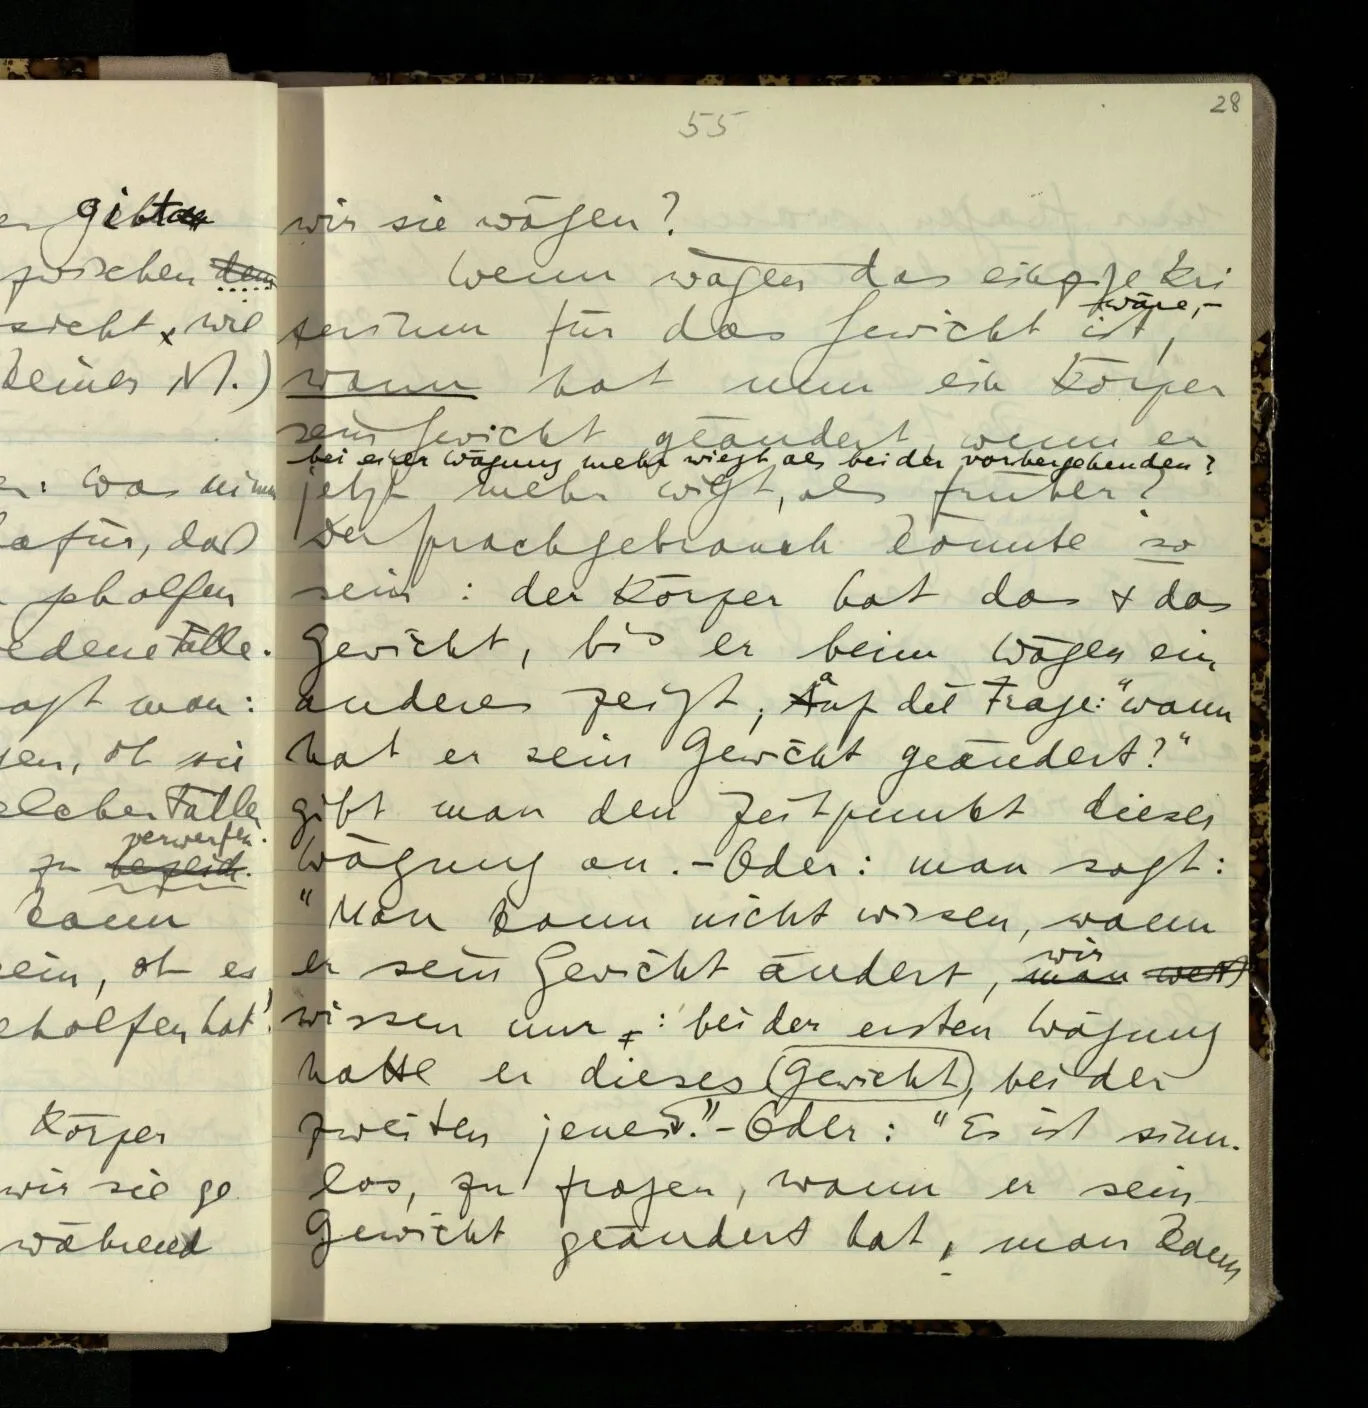 28
55
gibt
zwischen dem
sieht, wie
keines N.)
was nimm
dafür, daß
geholfen
Fälle.
sagt man:
gen, ob sie
welcher Fälle
verwerfen.
zu bezeich.
kann
sein, ob es
geholfen hat!
Körper
wir sie ge
während
wir sie wägen?
Wenn wägen das einzige Kri
wäre,–
terium für das Gewicht ist,
wann hat nun ein Körper
sein Gewicht geändert, wenn er
bei einer Wägung mehr wiegt als bei der vorhergehenden?
jetzt mehr wigt, als früher?
Der Sprachgebrauch könnte so
sein: der Körper hat das & das
Gewicht, bis er beim Wägen ein
anderes zeigt; auf die Frage: "wann
hat er sein Gewicht geändert?"
gibt man den Zeitpunkt dieser
Wägung an. – Oder: man sagt:
"Man kann nicht wissen, wann
wir
er sein Gewicht ändert, man weiß
wissen nur: bei der ersten Wägung
hatte er dieses Gewicht, bei der
zweiten jenes." – Oder: "Es ist sinn-
los, zu fragen, wann er sein
Gewicht geändert hat, man kann